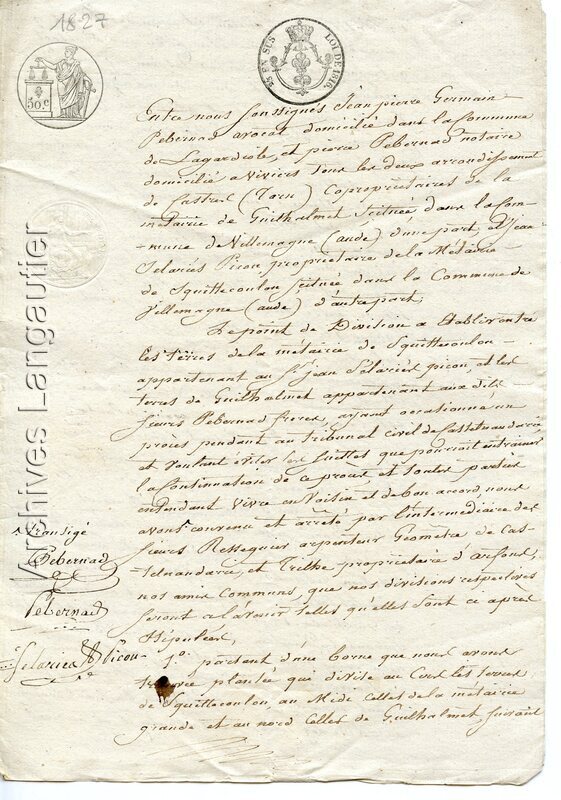 1827
50 c
25 EN SUS
LOI DE 1816
Entre nous soussignés Jean pierre Germain
Pebernad avocat domicilié dans la Commune
de Lagardiole, et pierre Pebernad notaire
domicilié a viviers tous les deux arrondissement
de Castres (Tarn) Copropriétaires de la
métairie de Guilhalmet scituée dans la Com-
mune d'Villemagne (aude) d'une part, et Jean
Selariès Picou, propriétaire de la Métairie
de Squittecoulou scituée dans la Commune de
Villemagne (aude) d'autre part,
Le point de Division a Etablir entre
les terres de la métairie de Squittecoulou
appartenant au Sr Jean Selariès picou, et les
terres de Guilhalmet appartenant aux dits
sieurs Pebernad freres, ayant occasionné un
procès pendant au tribunal civil de Castelnaudary
et voulant éviter les suittes que pourrait entrainer
la Continuation de ce procès, et toutes parties
entendant vivre en voisin et de bon accord, nous
avons convenu et arrêté par l'intermédiaire des
sieurs Resseguier arpenteur Géometre de Cas-
telnaudary, et Trilhe propriétaire d'
nos amis Communs, que nos divisions respectives
seront a l'avenir telles qu'elles sont ci après
Stipulées,
1o. partant d'une borne que nous avons
trouvée plantée qui divise au Cers les terres
de Squittecoulou, au Midi celles de la métairie
grande et au nord celles de Guilhalmet, suivant
transigé
Pebernad
Pebernad
Selariès picou
Archives Langautier